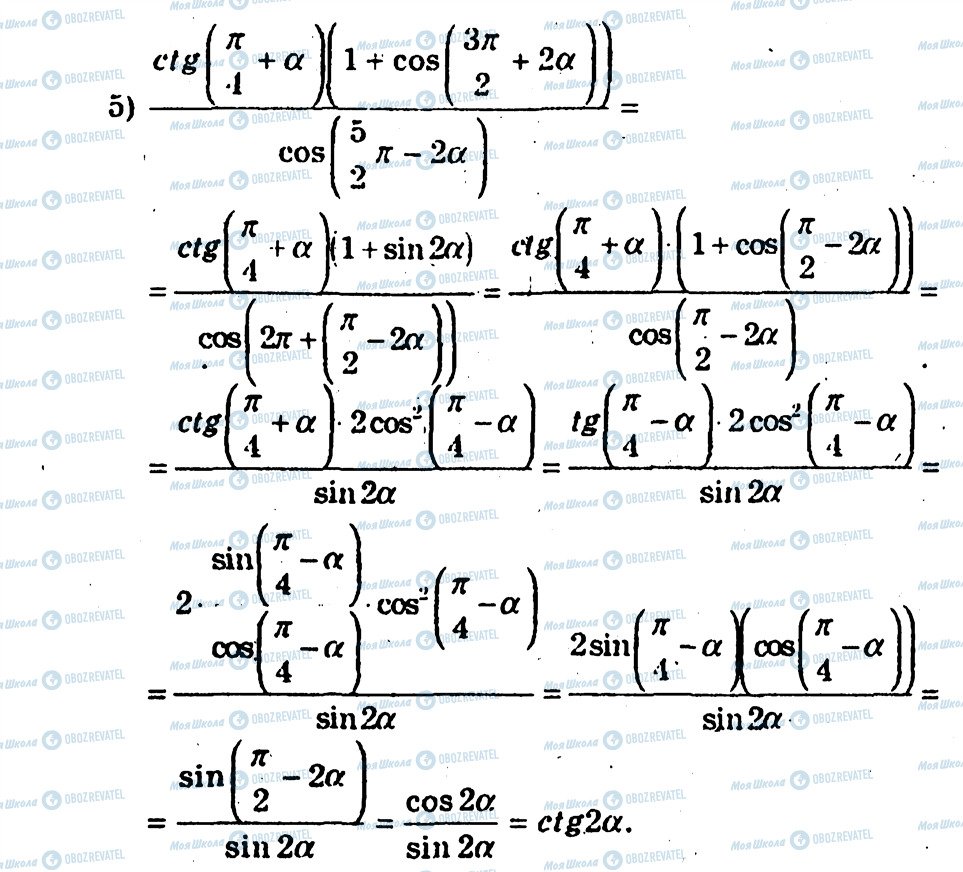 5) ctg(π/4 + α)(1 + cos(3π/2 + 2α)) / cos(5/2 π − 2α) =
= ctg(π/4 + α)(1 + sin 2α) / cos(2π + (π/2 − 2α)) = ctg(π/4 + α) · (1 + cos(π/2 − 2α)) / cos(π/2 − 2α) =
= ctg(π/4 + α) · 2 cos²(π/4 − α) / sin 2α = tg(π/4 − α) · 2 cos²(π/4 − α) / sin 2α =
= 2 · sin(π/4 − α) / cos(π/4 − α) · cos²(π/4 − α) / sin 2α = 2 sin(π/4 − α)(cos(π/4 − α)) / sin 2α =
= sin(π/2 − 2α) / sin 2α = cos 2α / sin 2α = ctg2α.
Моя Школа OBOZREVATEL